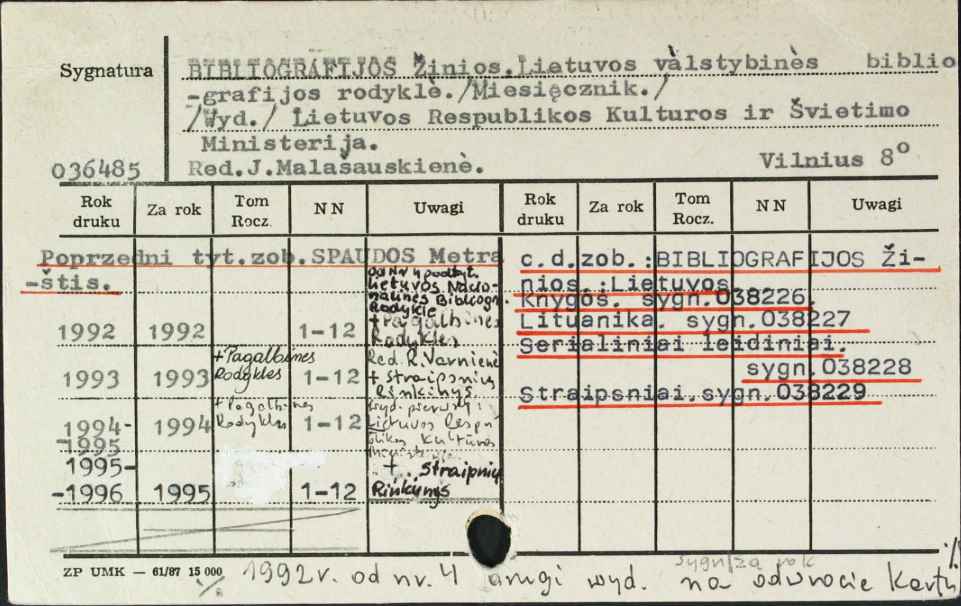 Sygnatura
BIBLIOGRAFIJOS Žinios.Lietuvos valstybinės biblio
-grafijos rodyklė./Miesięcznik./
/Wyd./ Lietuvos Respublikos Kulturos ir Švietimo
Ministerija.
036485
Red.J.Malašauskienė.
Vilnius 8°
Rok druku
Za rok
Tom Rocz.
NN
Uwagi
Rok druku
Za rok
Tom Rocz.
NN
Uwagi
Poprzedni tyt.zob.SPAUDOS Metra
-štis.
od Nr 4 podtyt.
Lietuvos Nacio-
nalinės Bibliogr.
Rodyklė
1992 1992 1-12 + Pagalbinės
Rodyklės
+ Pagalbinės
Rodyklės
Red. R. Varnienė
1993 1993 1-12 + straipsnių
Rinkinys
+ Pagalbinės
Rodyklės
wyd. pierwszy:
1994-
-1995
1994 1-12 Lietuvos Respu
blikos Kultūros
1995-
-1996
1995 1-12 + straipnių
Rinkinys
c.d.zob.:BIBLIOGRAFIJOS Ži-
nios.:Lietuvos
Knygos. sygn.038226.
Lituanika. sygn.038227
Serialiniai leidiniai.
sygn.038228
Straipsniai.sygn.038229
ZP UMK — 61/87 15 000
sygn/za rok
1992 r. od nr. 4 drugi wyd. na odwrocie karty